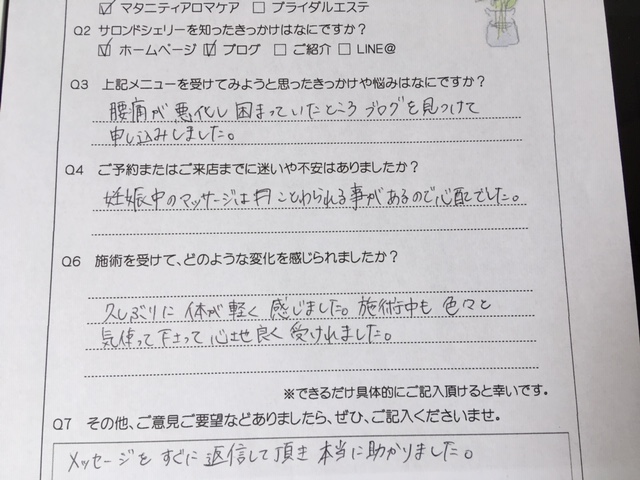 ☑ マタニティアロマケア ☐ ブライダルエステ
Q2 サロンドシェリーを知ったきっかけはなにですか？
☑ ホームページ ☑ ブログ ☐ ご紹介 ☐ LINE@
Q3 上記メニューを受けてみようと思ったきっかけや悩みはなにですか？
腰痛が悪化し困まっていたところ ブログを見つけて
申し込みしました。
Q4 ご予約またはご来店までに迷いや不安はありましたか？
妊娠中のマッサージは ことわられる事があるので心配でした。
Q6 施術を受けて、どのような変化を感じられましたか？
久しぶりに 体が軽く 感じました。施術中も 色々と
気使って下さって 心地良く 受けれました。
※できるだけ具体的にご記入頂けると幸いです。
Q7 その他、ご意見ご要望などありましたら、ぜひ、ご記入くださいませ。
メッセージを すぐに 返信して頂き 本当に助かりました。